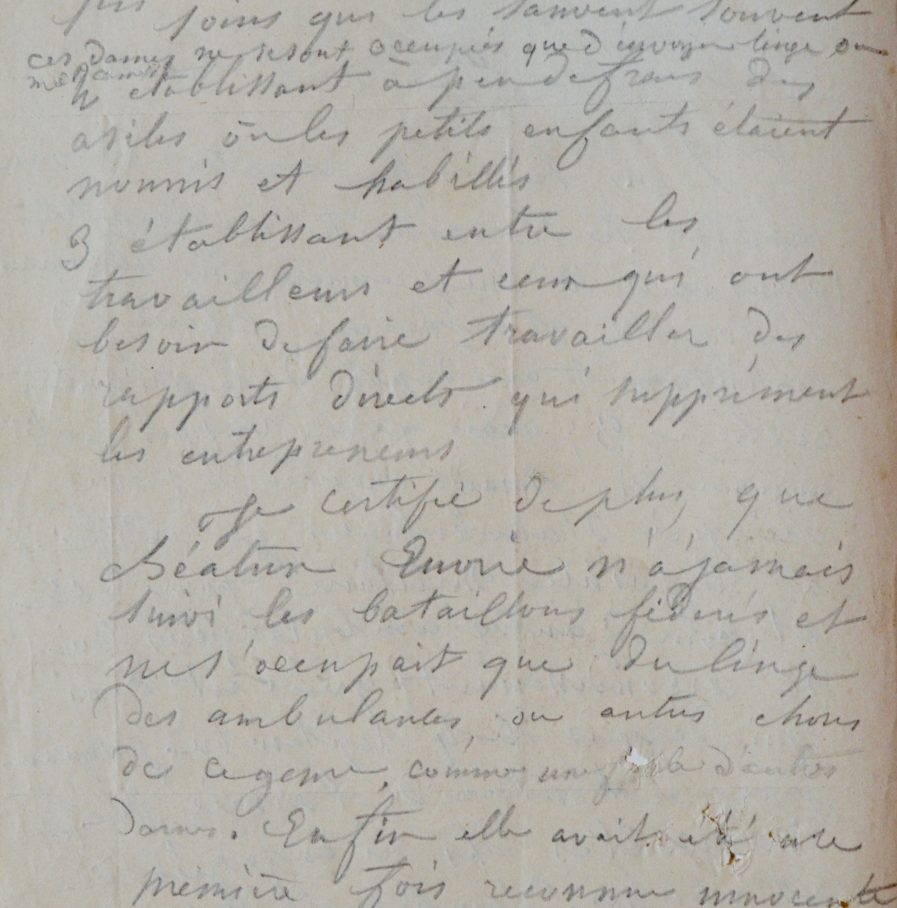 soins que les sauvent souvent
ces dames ne se sont occupées que d'envoyer linge ou
2 établissant à peu de frais des
asiles où les petits enfants étaient
nourris et habillés
3 établissant entre les
travailleurs et ceux qui ont
besoin de faire travailler des
rapports directs qui suppriment
les entrepreneurs
Je certifie de plus que
Béatrix Euvrie n'a jamais
suivi les bataillons fédérés et
ne s'occupait que du linge
des ambulances ou autres choses
de ce genre, comme une foule d'autres
dames. Enfin elle avait été une
première fois reconnue innocente